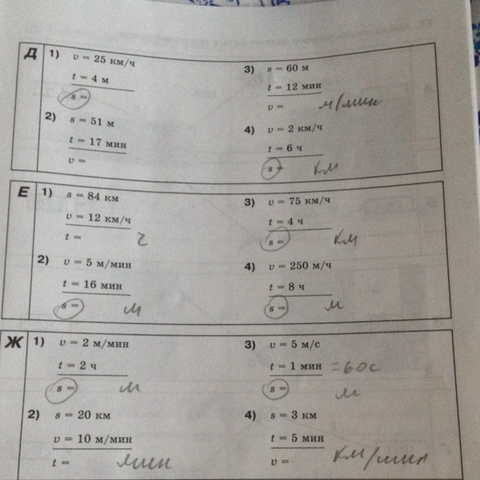 Д
1) v = 25 км/ч
t = 4 м
s =
2) s = 51 м
t = 17 мин
v =
3) s = 60 м
t = 12 мин
v = м/мин
4) v = 2 км/ч
t = 6 ч
s = км
Е
1) s = 84 км
v = 12 км/ч
t = ч
2) v = 5 м/мин
t = 16 мин
s = м
3) v = 75 км/ч
t = 4 ч
s = км
4) v = 250 м/ч
t = 8 ч
s = м
Ж
1) v = 2 м/мин
t = 2 ч
s = м
2) s = 20 км
v = 10 м/мин
t = мин
3) v = 5 м/с
t = 1 мин =60с
s = м
4) s = 3 км
t = 5 мин
v = км/мин